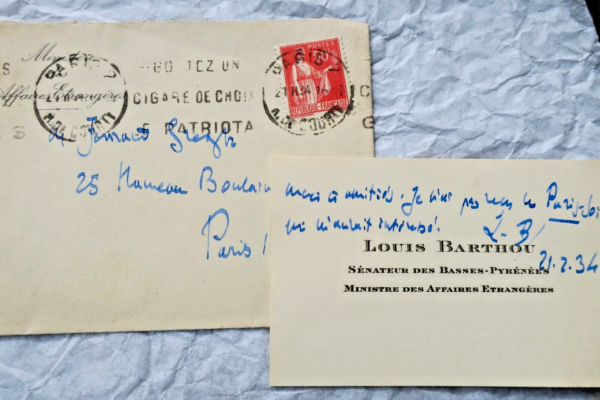 Affaires Etrangères
GOUTEZ UN
CIGARE DE CHOIX
PATRIOTA
POSTES
REPUBLIQUE FRANÇAISE
25 Hameau Boulain
Paris
merci et amitiés. Je n'ai pas reçu le Paris-
qui m'aurait intéressé.
L. B.
LOUIS BARTHOU
21.2.34
SÉNATEUR DES BASSES-PYRÉNÉES
MINISTRE DES AFFAIRES ETRANGÈRES